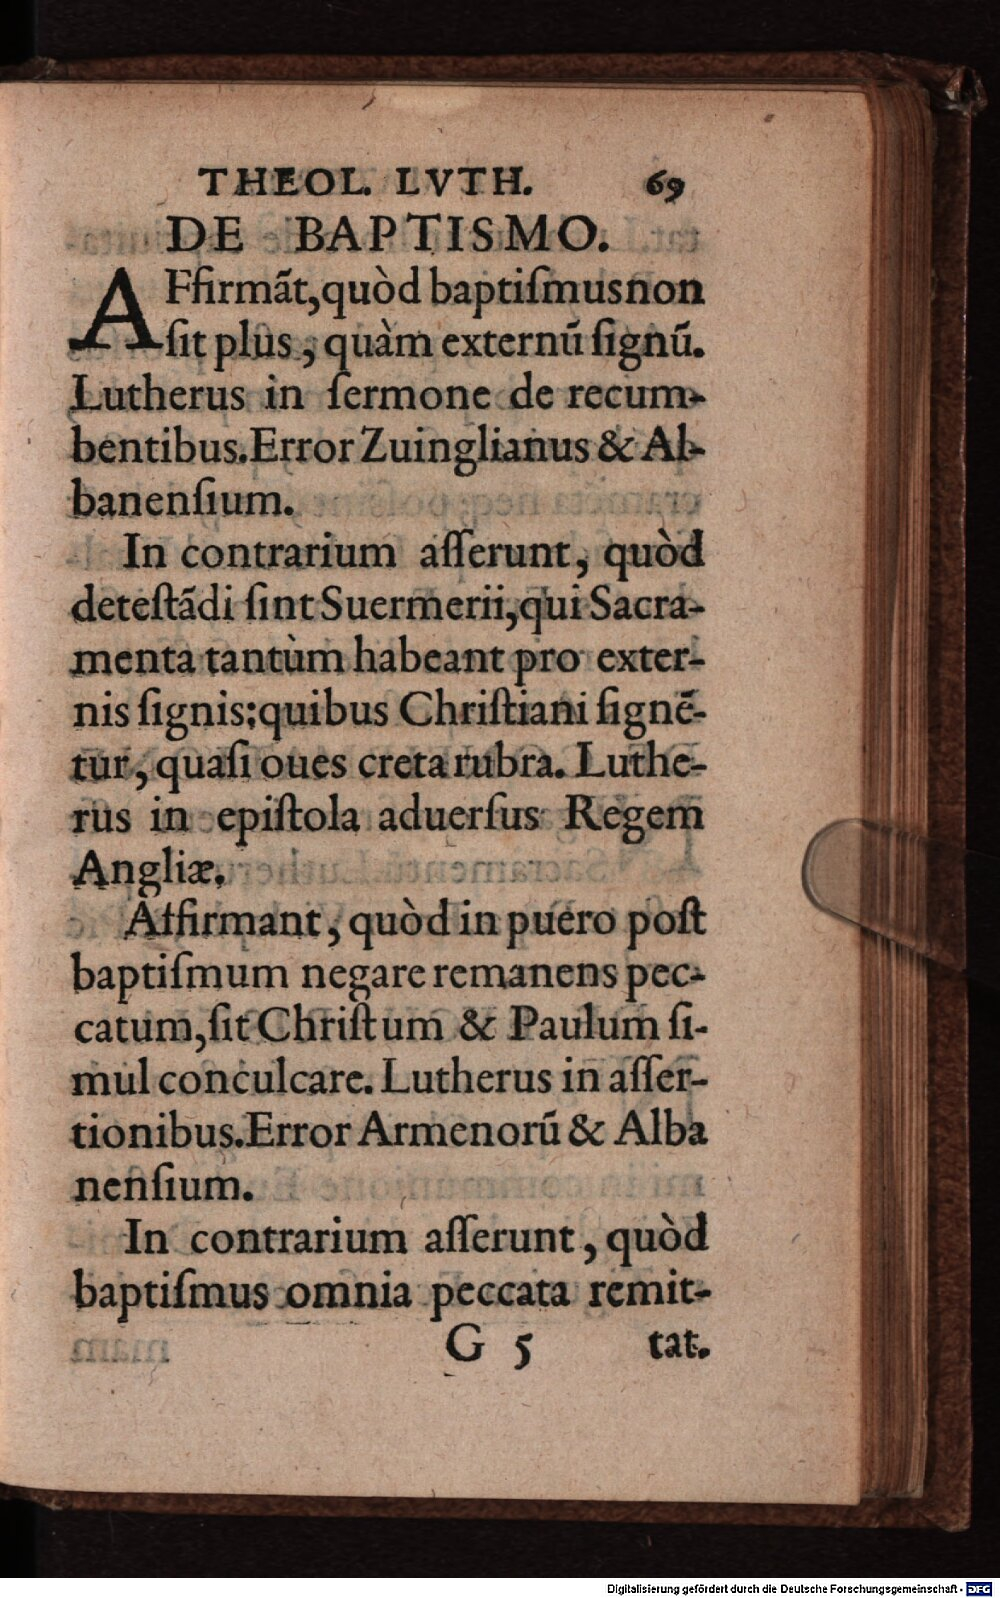 THEOL. LVTH. 69
DE BAPTISMO.
AFfirmãt,quòd baptiſmus non
ſit plus, quàm externũ ſignũ.
Lutherus in ſermone de recum-
bentibus.Error Zuinglianus & Al-
banenſium.
In contrarium aſſerunt, quòd
deteſtãdi ſint Suermerii,qui Sacra-
menta tantùm habeant pro exter-
nis ſignis:quibus Chriſtiani ſignẽ-
tur, quaſi oues creta rubra. Luthe-
rus in epiſtola aduerſus Regem
Angliæ.
Affirmant, quòd in puero poſt
baptiſmum negare remanens pec-
catum,ſit Chriſtum & Paulum ſi-
mul conculcare. Lutherus in aſſer-
tionibus.Error Armenorũ & Alba
nenſium.
In contrarium aſſerunt, quòd
baptiſmus omnia peccata remit-
G 5 tat.
Digitalisierung gefördert durch die Deutsche Forschungsgemeinschaft - DFG